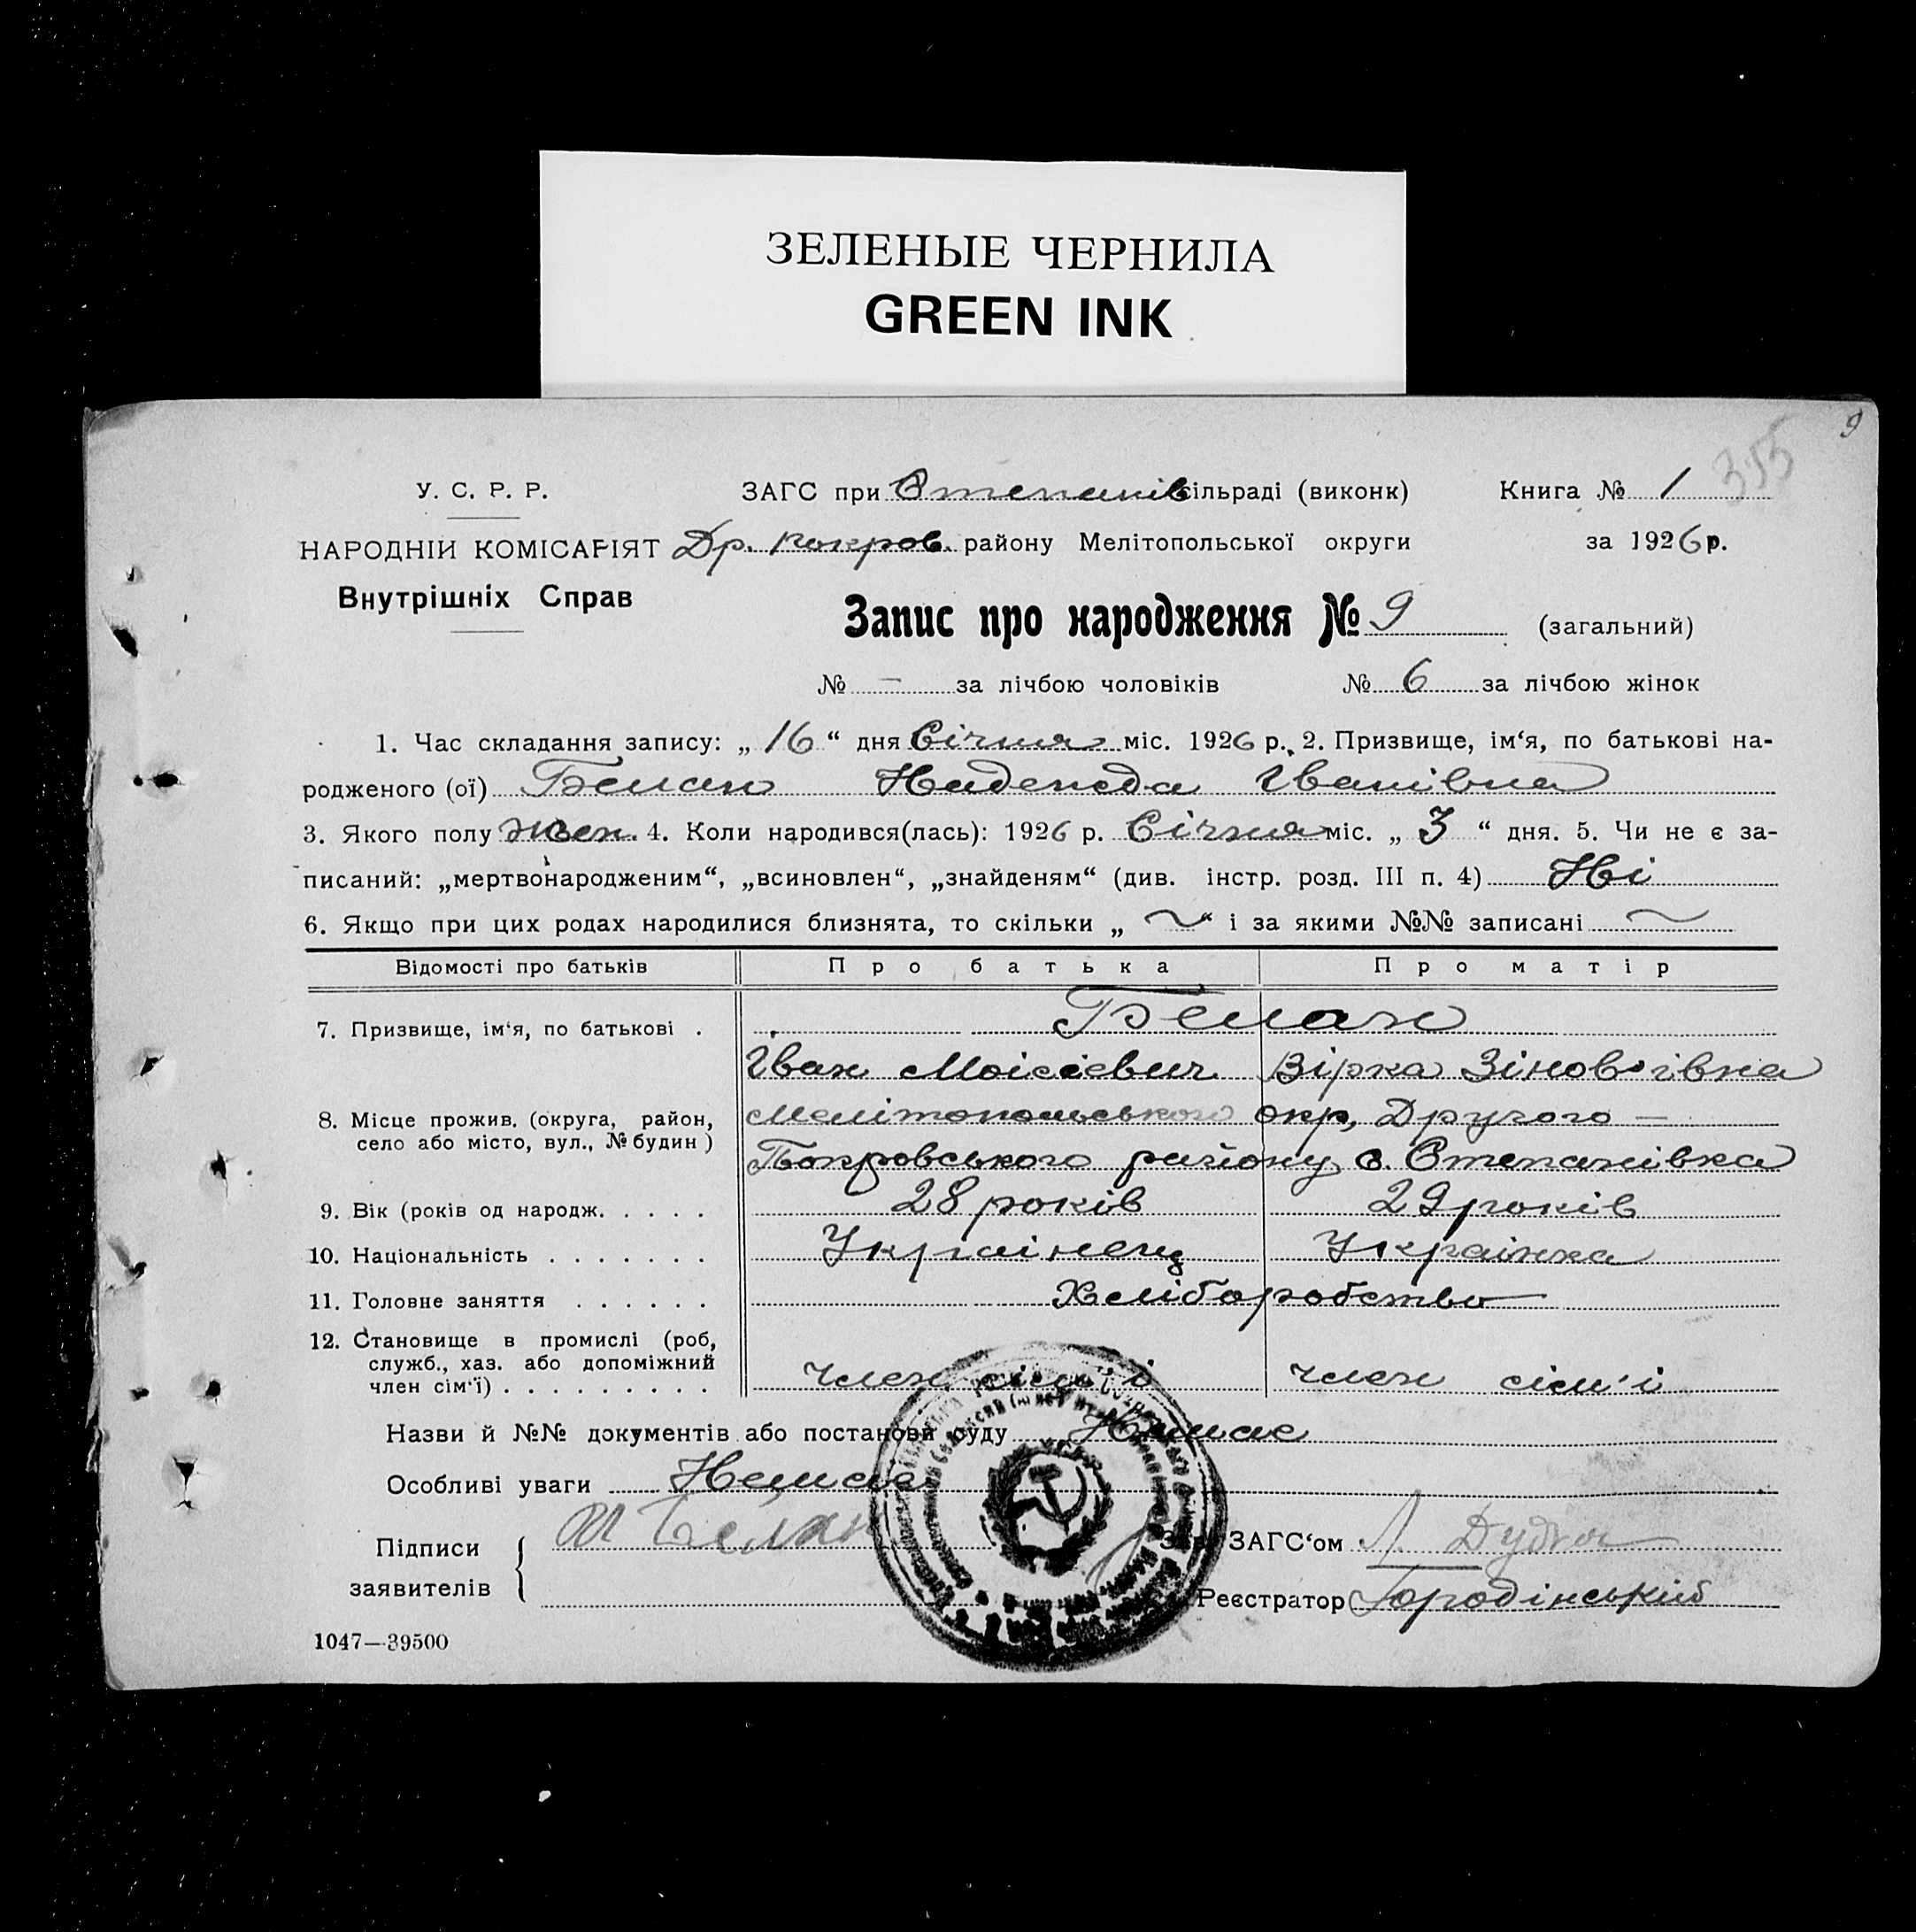 ЗЕЛЕНЫЕ ЧЕРНИЛА
GREEN INK
9
355
У. С. Р. Р. ЗАГС при Степанівсільраді (виконк) Книга № 1
НАРОДНІЙ КОМІСАРІЯТ Др. покров. району Мелітопольської округи за 1926 р.
Внутрішніх Справ
Запис про народження № 9 (загальний)
№ — за лічбою чоловіків № 6 за лічбою жінок
1. Час складання запису: „ 16 “ дня Січня міс. 1926 р. 2. Призвище, ім‘я, по батькові на-
родженого (ої) Белан Надежда Іванівна
3. Якого полу жен. 4. Коли народився(лась): 1926 р. Січня міс. „ 3 “ дня. 5. Чи не є за-
писаний: „мертвонародженим“, „всиновлен“, „знайденям“ (див. інстр. розд. III п. 4) Ні
6. Якщо при цих родах народилися близнята, то скільки „ ~ “ і за якими №№ записані ~
Відомості про батьків Про батька Про матір
7. Призвище, ім‘я, по батькові . Белан
Іван Моісієвич Вірка Зінов‘ївна
8. Місце прожив. (округа, район, Мелітопольського окр, Другого —
село або місто, вул., № будин )
Покровського району с. Степанівка
9. Вік (років од народж. . . . . 28 років 29 років
10. Національність . . . . . . . Українец Українка
11. Головне заняття . . . . . . Хеліборобство
12. Становище в промислі (роб,
служб., хаз. або допоміжний
член сім‘ї) . . . . . . . . . член сім'ї член сім'і
Назви й №№ документів або постанови суду Немає
Особливі уваги Немає
Підписи И Белан Зав. ЗАГС‘ом Л. Дудка
заявителів Реєстратор Городінський
1047—39500